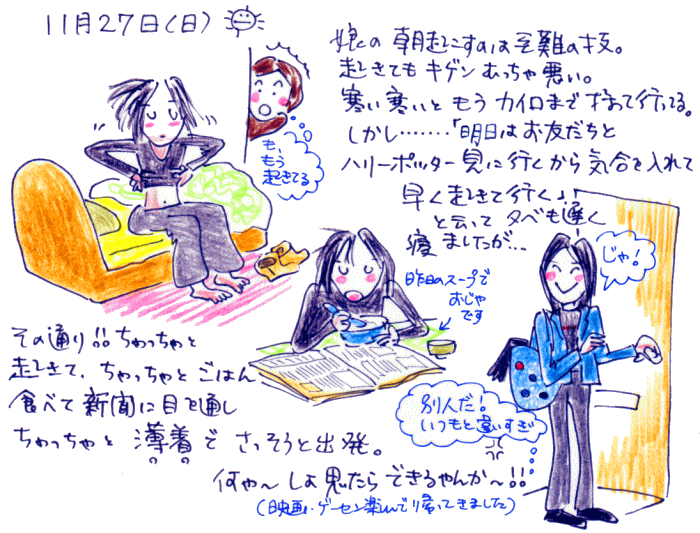 11月27日(日)
娘の朝起こすのは至難の技。
起きてもキゲンめっちゃ悪い。
寒い寒いともうカイロまで持って行ってる。
しかし……「明日はお友だちと
ハリーポッター見に行くから気合を入れて
早く起きて行く♪」
と云って夕べも遅く
寝ましたが…
も、
もう
起きてる
じゃ!
昨日のスープで
おじゃ
です
その通り!!ちゃっちゃと
起きて、ちゃっちゃとごはん
食べて新聞に目を通し
ちゃっちゃと薄着でさっそうと出発。
別人だ!
いつもと違いすぎ
何や〜しよ思たらできるやんか〜!!
(映画・ゲーセン楽しんで帰ってきました)